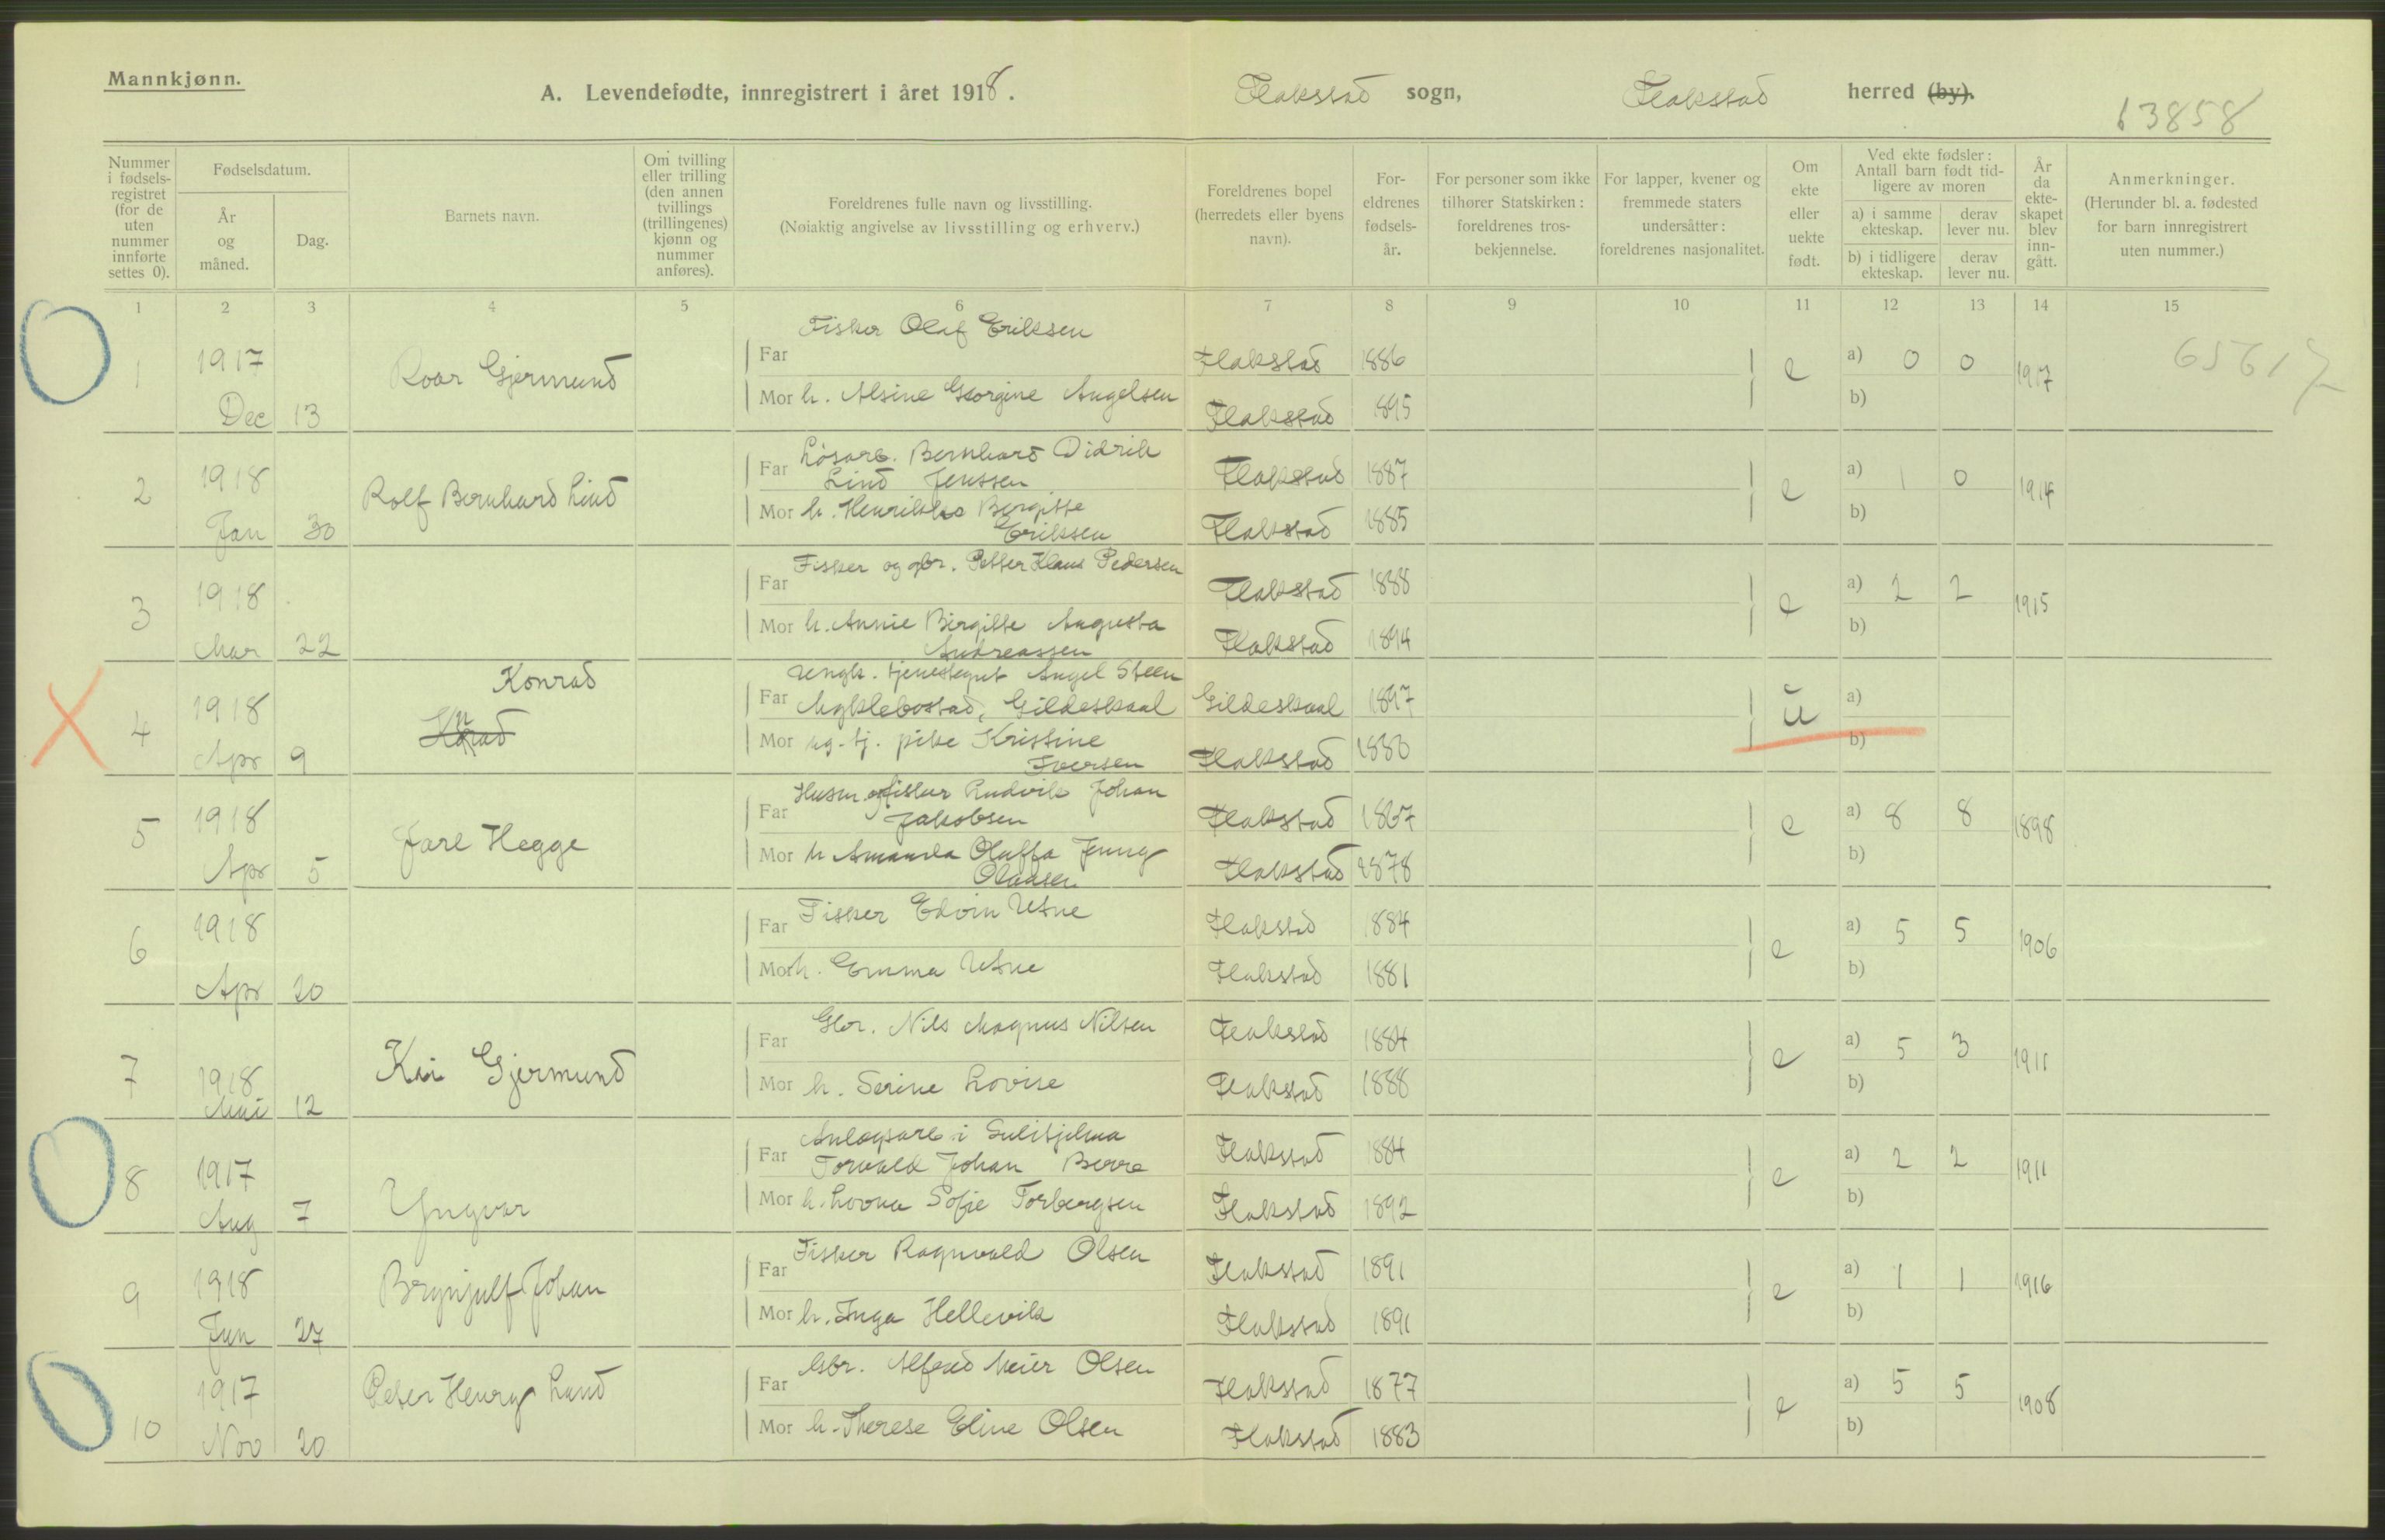 Mannkjønn.
A. Levendefødte, innregistrert i året 1918. Flakstad sogn, Flakstad herred (by).
13858
Nummer i fødselsregistret (for de uten nummer innførte settes 0).
Fødselsdatum.
År og måned.
Dag.
Barnets navn.
Om tvilling eller trilling (den annen tvillings (trillingenes) kjønn og nummer anføres).
Foreldrenes fulle navn og livsstilling.
(Nøiaktig angivelse av livsstilling og erhverv.)
Foreldrenes bopel (herredets eller byens navn).
Foreldrenes fødselsår.
For personer som ikke tilhører Statskirken: foreldrenes trosbekjennelse.
For lapper, kvener og fremmede staters undersåtter: foreldrenes nasjonalitet.
Om ekte eller uekte født.
Ved ekte fødsler: Antall barn født tidligere av moren
a) i samme ekteskap. derav lever nu.
b) i tidligere ekteskap. derav lever nu.
År da ekteskapet blev inngått.
Anmerkninger.
(Herunder bl. a. fødested for barn innregistrert uten nummer.)
1 2 3 4 5 6 7 8 9 10 11 12 13 14 15
1 1917 Dec 13 Roar Gjermund
Far Fisker Olaf Eriksen Flakstad 1886
Mor h. Alsine Georgine Angelsen Flakstad 1895
e a) 0 0 b) 1917
2 1918 Jan 30 Rolf Bernhard Lind
Far Løsarb. Bernhard Didrik
Lind Jenssen Flakstad 1887
Mor h. Henrikke Bergitte
Eriksen Flakstad 1885
e a) 1 0 b) 1914
3 1918 Mar 22
Far Fisker og gbr. Petter Klaus Pedersen Flakstad 1888
Mor h. Annie Birgitte Augusta
Andreassen Flakstad 1894
e a) 2 2 b) 1915
4 1918 Apr 9 Konrad
Far Ungk. tjenestegut Angel Steen
Myklebostad, Gildeskaal Gildeskaal 1897
Mor ug. tj. pike Kristine
Iversen Flakstad
u a) b)
5 1918 Apr 5 Jarl Hegge
Far Husm. og fisker Rudvik Johan
Jakobsen Flakstad 1867
Mor h Amanda Oluffa Jenny
Olausen Flakstad 1878
e a) 8 8 b) 1898
6 1918 Apr 20
Far Fisker Edvin Utne Flakstad 1884
Mor h. Emma Utne Flakstad 1881
e a) 5 5 b) 1906
7 1918 Mai 12 Kai Gjermund
Far Gbr. Nils Magnus Nilsen Flakstad 1884
Mor h. Serine Lovise Flakstad 1888
e a) 5 3 b) 1911
8 1917 Aug 7 Yngvar
Far Anlegsarb i Sulitjelma
Torvald Johan Berre Flakstad 1884
Mor h. Lovna Sofie Torbergsen Flakstad 1892
e a) 2 2 b) 1911
9 1918 Jun 27 Brynjulf Johan
Far Fisker Ragnvald Olsen Flakstad 1891
Mor h. Inga Hellevik Flakstad 1891
e a) 1 1 b) 1916
10 1917 Nov 20 Peter Henry Lund
Far Gbr. Alfred Meier Olsen Flakstad 1877
Mor h. Therese Eline Olsen Flakstad 1883
e a) 5 5 b) 1908